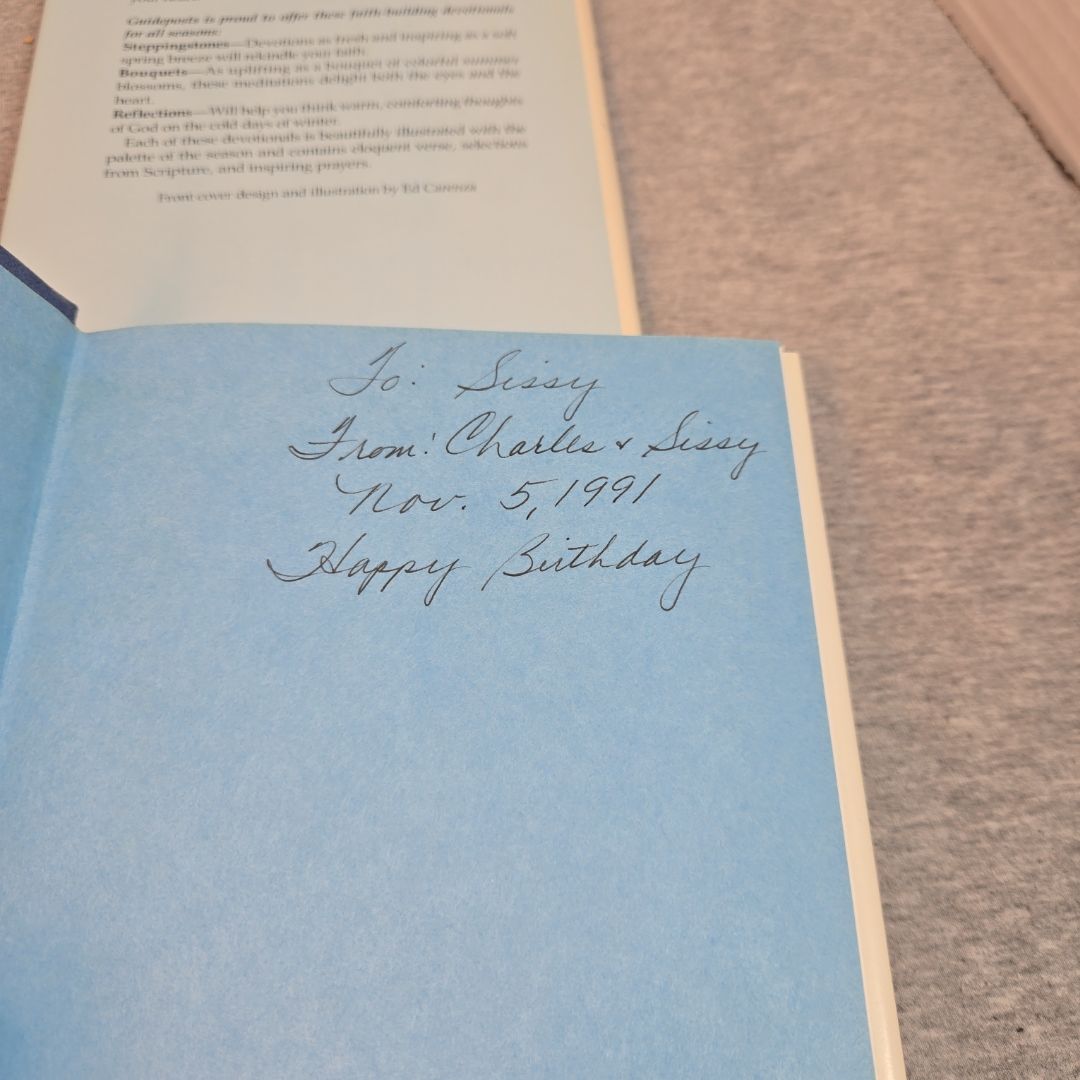 Guideposts is proud to offer these faith-building devotionals
for all seasons:
Steppingstones—Devotions as fresh and inspiring as a soft
spring breeze will rekindle your faith.
Bouquets—As uplifting as a bouquet of colorful summer
blossoms, these meditations delight both the eyes and the
heart.
Reflections—Will help you think warm, comforting thoughts
of God on the cold days of winter.
Each of these devotionals is beautifully illustrated with the
palette of the season and contains eloquent verse, selections
from Scripture, and inspiring prayers.
Front cover design and illustration by Ed Carenza
To: Sissy
From: Charles & Sissy
Nov. 5, 1991
Happy Birthday